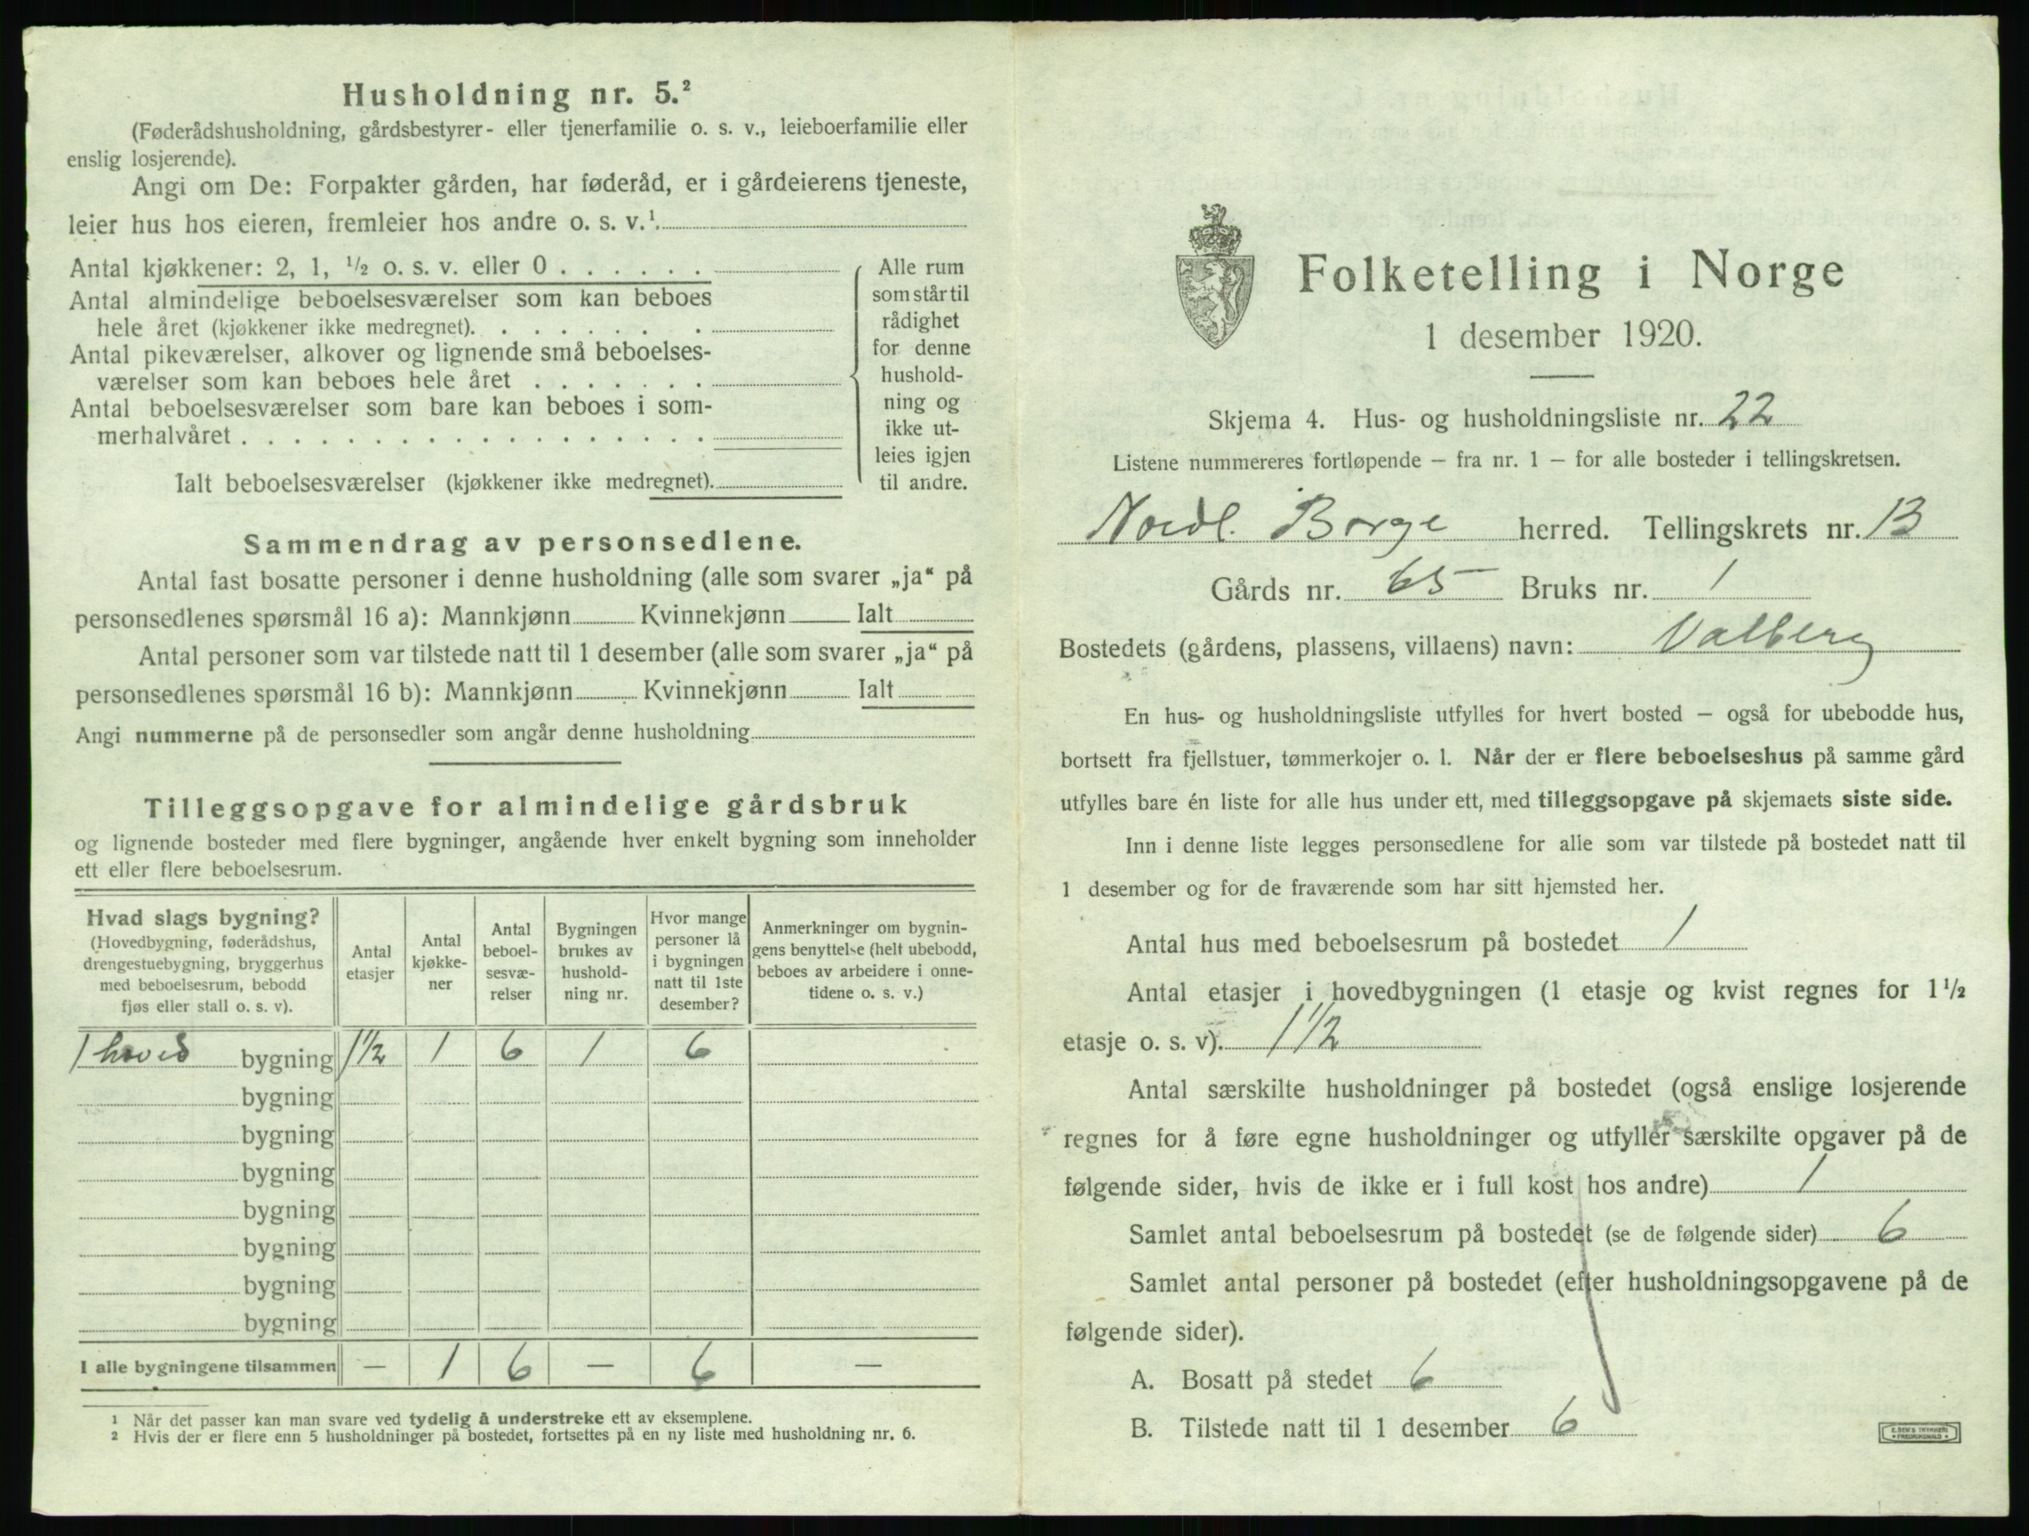 Husholdning nr. 5.²
(Føderådshusholdning, gårdsbestyrer- eller tjenerfamilie o. s. v., leieboerfamilie eller
enslig losjerende).
Angi om De: Forpakter gården, har føderåd, er i gårdeierens tjeneste,
leier hus hos eieren, fremleier hos andre o. s. v.¹
Antal kjøkkener: 2, 1, ½ o. s. v. eller 0 . . . . . .
Antal almindelige beboelsesværelser som kan beboes
hele året (kjøkkener ikke medregnet). . . . . . . .
Antal pikeværelser, alkover og lignende små beboelses-
værelser som kan beboes hele året . . . . . . .
Antal beboelsesværelser som bare kan beboes i som-
merhalvåret . . . . . . . . . . . . . . . . . .
Ialt beboelsesværelser (kjøkkener ikke medregnet).
Alle rum
som står til
rådighet
for denne
hushold-
ning og
ikke ut-
leies igjen
til andre.
Sammendrag av personsedlene.
Antal fast bosatte personer i denne husholdning (alle som svarer „ja“ på
personsedlenes spørsmål 16 a): Mannkjønn Kvinnekjønn Ialt
Antal personer som var tilstede natt til 1 desember (alle som svarer „ja“ på
personsedlenes spørsmål 16 b): Mannkjønn Kvinnekjønn Ialt
Angi nummerne på de personsedler som angår denne husholdning
Tilleggsopgave for almindelige gårdsbruk
og lignende bosteder med flere bygninger, angående hver enkelt bygning som inneholder
ett eller flere beboelsesrum.
Hvad slags bygning?
(Hovedbygning, føderådshus,
drengestuebygning, bryggerhus
med beboelsesrum, bebodd
fjøs eller stall o. s. v).
Antal
etasjer
Antal
kjøkke-
ner
Antal
beboel-
sesvæ-
relser
Bygningen
brukes av
hushold-
ning nr.
Hvor mange
personer lå
i bygningen
natt til 1ste
desember?
Anmerkninger om bygnin-
gens benyttelse (helt ubebodd,
beboes av arbeidere i onne-
tidene o. s. v.)
1 hoved bygning 1½ 1 6 1 6
bygning
bygning
bygning
bygning
bygning
bygning
bygning
I alle bygningene tilsammen — 1 6 — 6 —
¹ Når det passer kan man svare ved tydelig å understreke ett av eksemplene.
² Hvis der er flere enn 5 husholdninger på bostedet, fortsettes på en ny liste med husholdning nr. 6.
Folketelling i Norge
1 desember 1920.
Skjema 4. Hus- og husholdningsliste nr. 22
Listene nummereres fortløpende – fra nr. 1 – for alle bosteder i tellingskretsen.
Nordl. Borge herred. Tellingskrets nr. 13
Gårds nr. 65 Bruks nr. 1
Bostedets (gårdens, plassens, villaens) navn: Valberg
En hus- og husholdningsliste utfylles for hvert bosted – også for ubebodde hus,
bortsett fra fjellstuer, tømmerkojer o. l. Når der er flere beboelseshus på samme gård
utfylles bare én liste for alle hus under ett, med tilleggsopgave på skjemaets siste side.
Inn i denne liste legges personsedlene for alle som var tilstede på bostedet natt til
1 desember og for de fraværende som har sitt hjemsted her.
Antal hus med beboelsesrum på bostedet 1
Antal etasjer i hovedbygningen (1 etasje og kvist regnes for 1½
etasje o. s. v). 1½
Antal særskilte husholdninger på bostedet (også enslige losjerende
regnes for å føre egne husholdninger og utfyller særskilte opgaver på de
følgende sider, hvis de ikke er i full kost hos andre) 1
Samlet antal beboelsesrum på bostedet (se de følgende sider) 6
Samlet antal personer på bostedet (efter husholdningsopgavene på de
følgende sider).
A. Bosatt på stedet 6
B. Tilstede natt til 1 desember 6